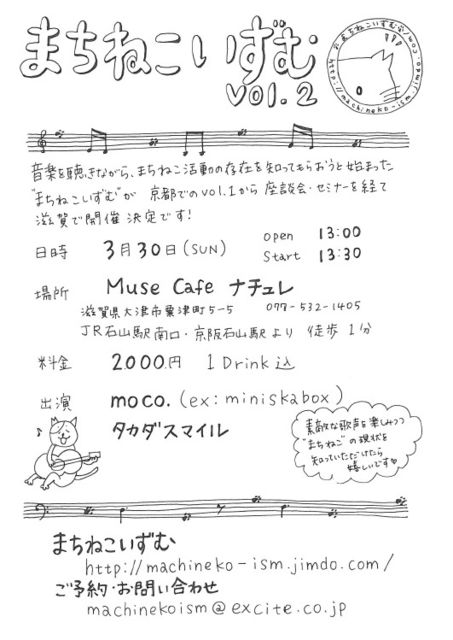 まちねこいずむ
vol.2
音楽を聴きながら、まちねこ活動の存在を知ってもらおうと始まった
"まちねこいずむ"が 京都でのvol.1から座談会・セミナーを経て
滋賀で開催決定です!
日時 3月30日(SUN) open 13:00
start 13:30
場所 Muse Cafe ナチュレ
滋賀県大津市粟津町5-5 077-532-1405
JR石山駅南口・京阪石山駅より 徒歩1分
料金 2000円 1Drink込
出演 moco.(ex:miniskabox)
タカダスマイル
素敵な歌声を楽しみつつ
"まちねこ"の現状を
知っていただけたら
嬉しいです♡
まちねこいずむ
http://machineko-ism.jimdo.com/
ご予約・お問い合わせ
machinekoism@excite.co.jp